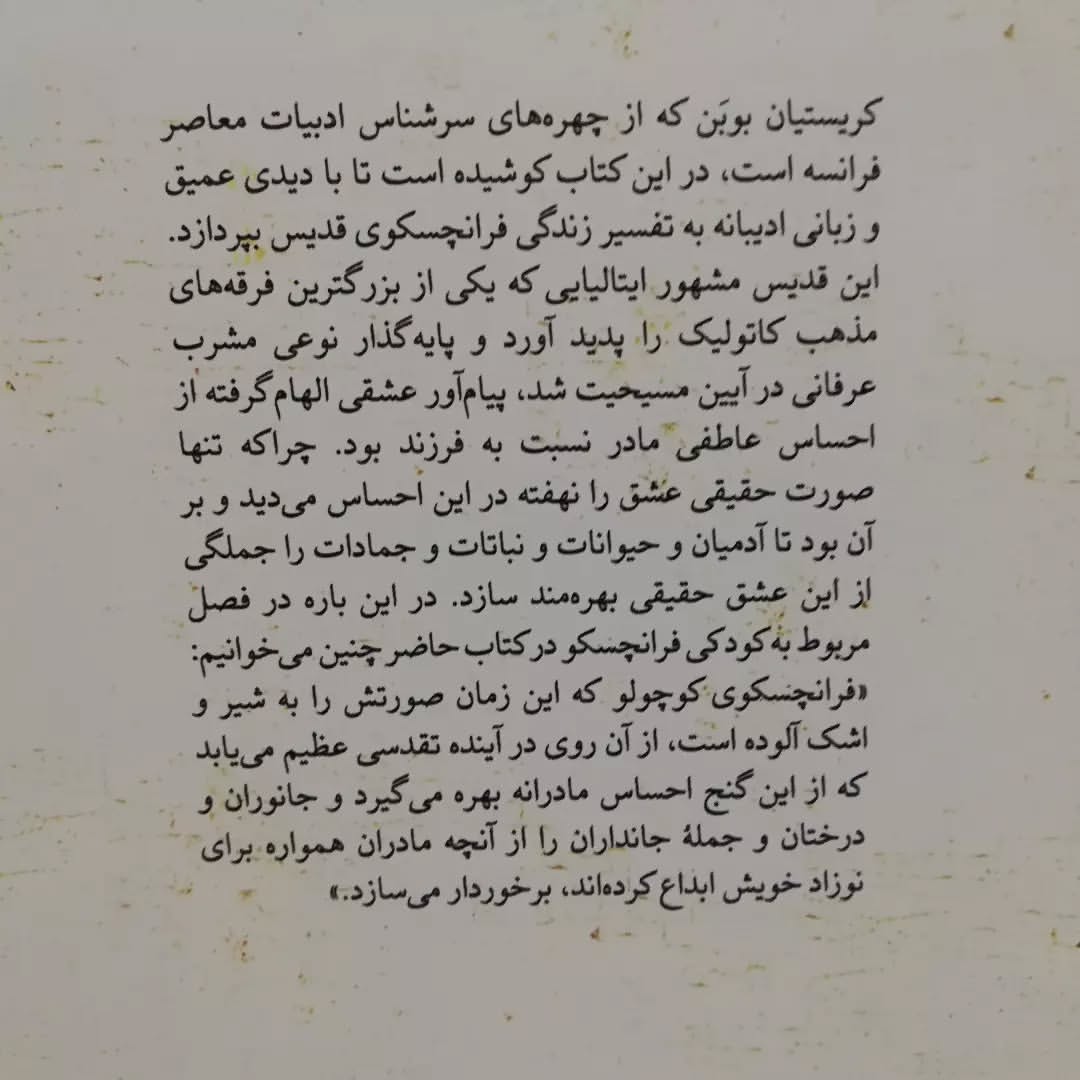 کریستیان بوبَن که از چهره‌های سرشناس ادبیات معاصر
فرانسه است، در این کتاب کوشیده است تا با دیدی عمیق
و زبانی ادیبانه به تفسیر زندگی فرانچسکوی قدیس بپردازد.
این قدیس مشهور ایتالیایی که یکی از بزرگترین فرقه‌های
مذهب کاتولیک را پدید آورد و پایه‌گذار نوعی مشرب
عرفانی در آیین مسیحیت شد، پیام‌آور عشقی الهام‌گرفته از
احساس عاطفی مادر نسبت به فرزند بود. چراکه تنها
صورت حقیقی عشق را نهفته در این احساس می‌دید و بر
آن بود تا آدمیان و حیوانات و نباتات و جمادات را جملگی
از این عشق حقیقی بهره‌مند سازد. در این باره در فصل
مربوط به کودکی فرانچسکو در کتاب حاضر چنین می‌خوانیم:
«فرانچسکوی کوچولو که این زمان صورتش را به شیر و
اشک آلوده است، از آن روی در آینده تقدسی عظیم می‌یابد
که از این گنج احساس مادرانه بهره می‌گیرد و جانوران و
درختان و جملهٔ جانداران را از آنچه مادران همواره برای
نوزاد خویش ابداع کرده‌اند، برخوردار می‌سازد.»